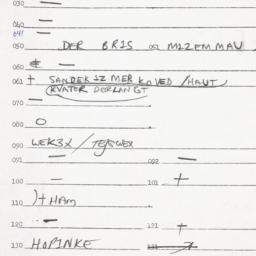 030 —
040 —
041 —
050 DER BRIS 051 MIZEMMAU
060 —
061 + SANDEK IZ MER KOVED / HAUT
KVATER DERLANGT
070 —
080 O
090 WEK3X /
091 — 092 —
100 — 101 +
110 )+HAM
120 — 121 +
130 HOPINKE 131